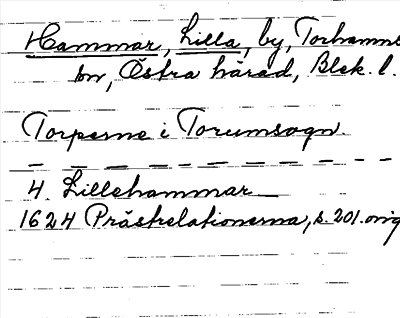 Hammar, Lilla, by, Torhamns
sn, Östra härad, Blek. l.
Torperne i Torumsogn.
4. Lillehammar
1624 Präskelationerna, s. 201. orig